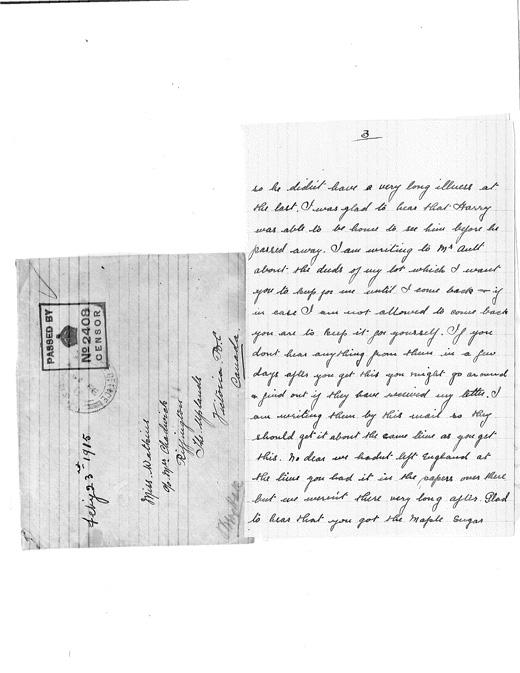 PASSED BY
No 2408
CENSOR
Feby 23rd 1915
Miss Watkins
c/o Mrs Chadwick
Riffington
The Uplands
Victoria B.C
Canada.
3
so he didn't have a very long illness at
the last. I was glad to hear that Harry
was able to be home to see him before he
passed away. I am writing to Mr Ault
about the deeds of my lot which I want
you to keep for me until I come back &
in case I am not allowed to come back
you are to keep it for yourself. If you
dont hear anything from them in a few
days after you get this you might go around
& find out if they have received my letter. I
am writing them by this mail so they
should get it about the same time as you get
this. No dear we hadnt left England at
the time you had it in the papers over there
but we wernt there very long after. Glad
to hear that you got the Maple Sugar